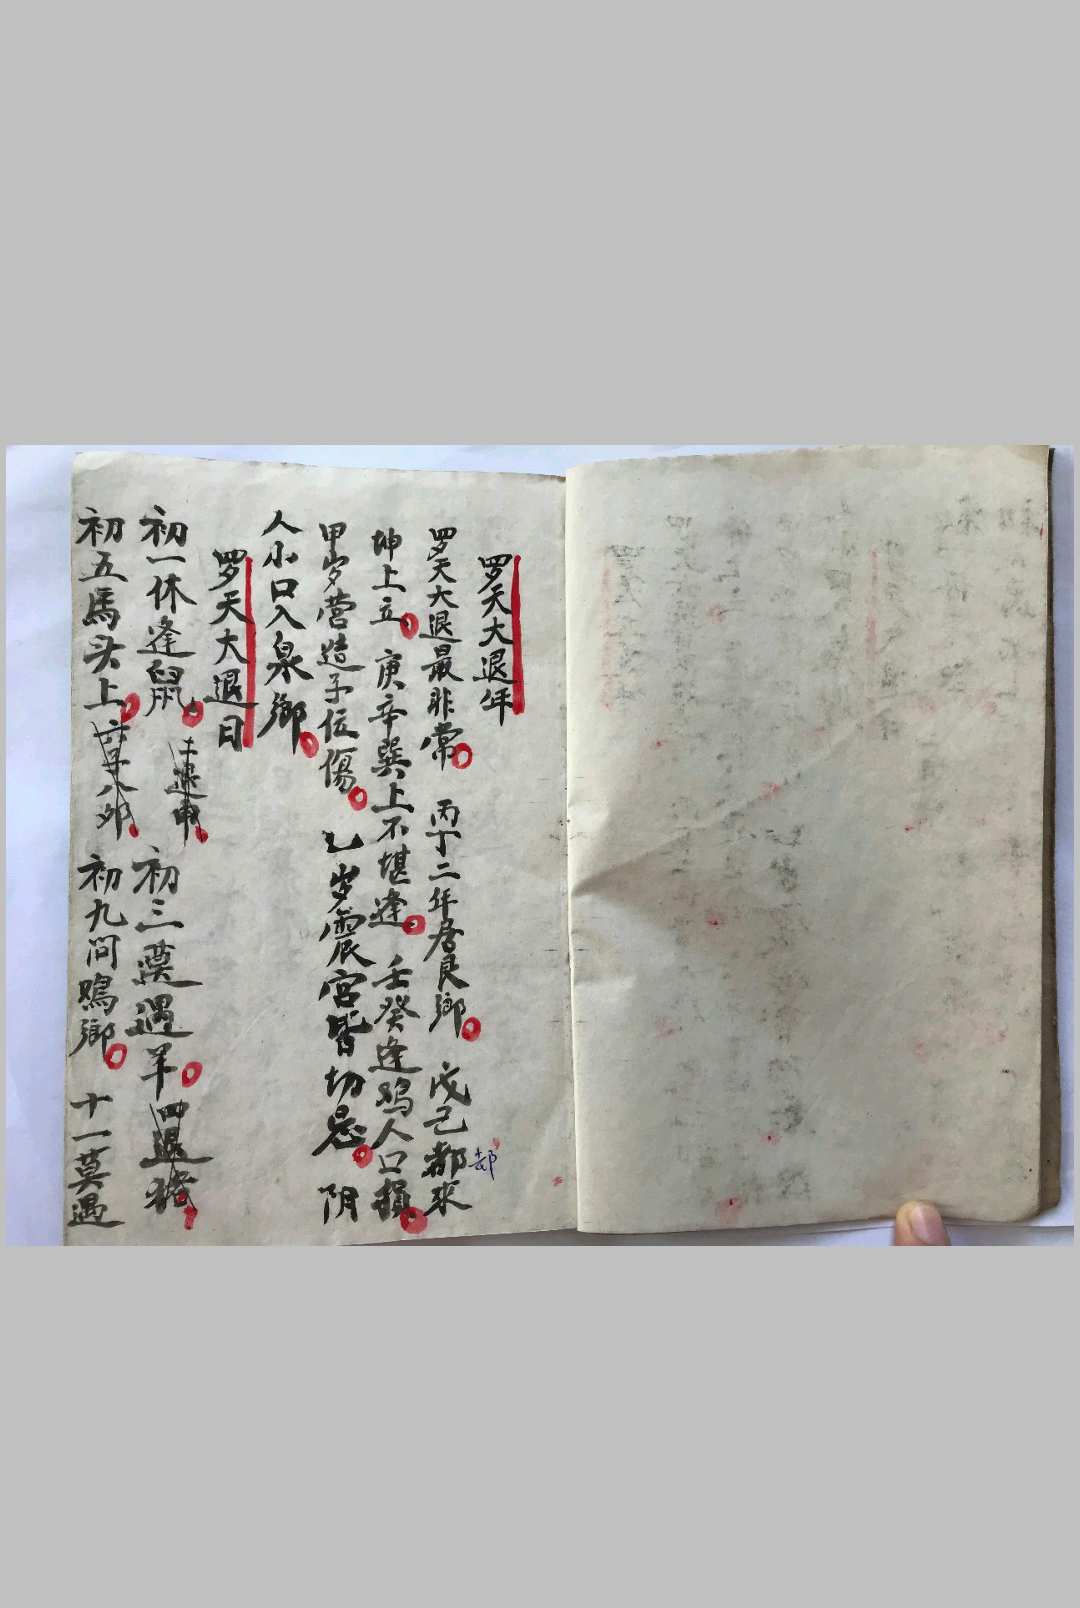 罗天大退年
罗天大退最非常 丙丁二年居艮鄉 戊己都來
却
坤上立 庚辛巽上不堪逢 壬癸逢鸡人口損
甲岁营造子位傷 乚岁震宫皆切忌 阴
人小口入泉鄉
罗天大退日
初一休逢鼠 初三莫遇羊 四退猪
初五馬头上 初九问鸡鄉 十一莫遇